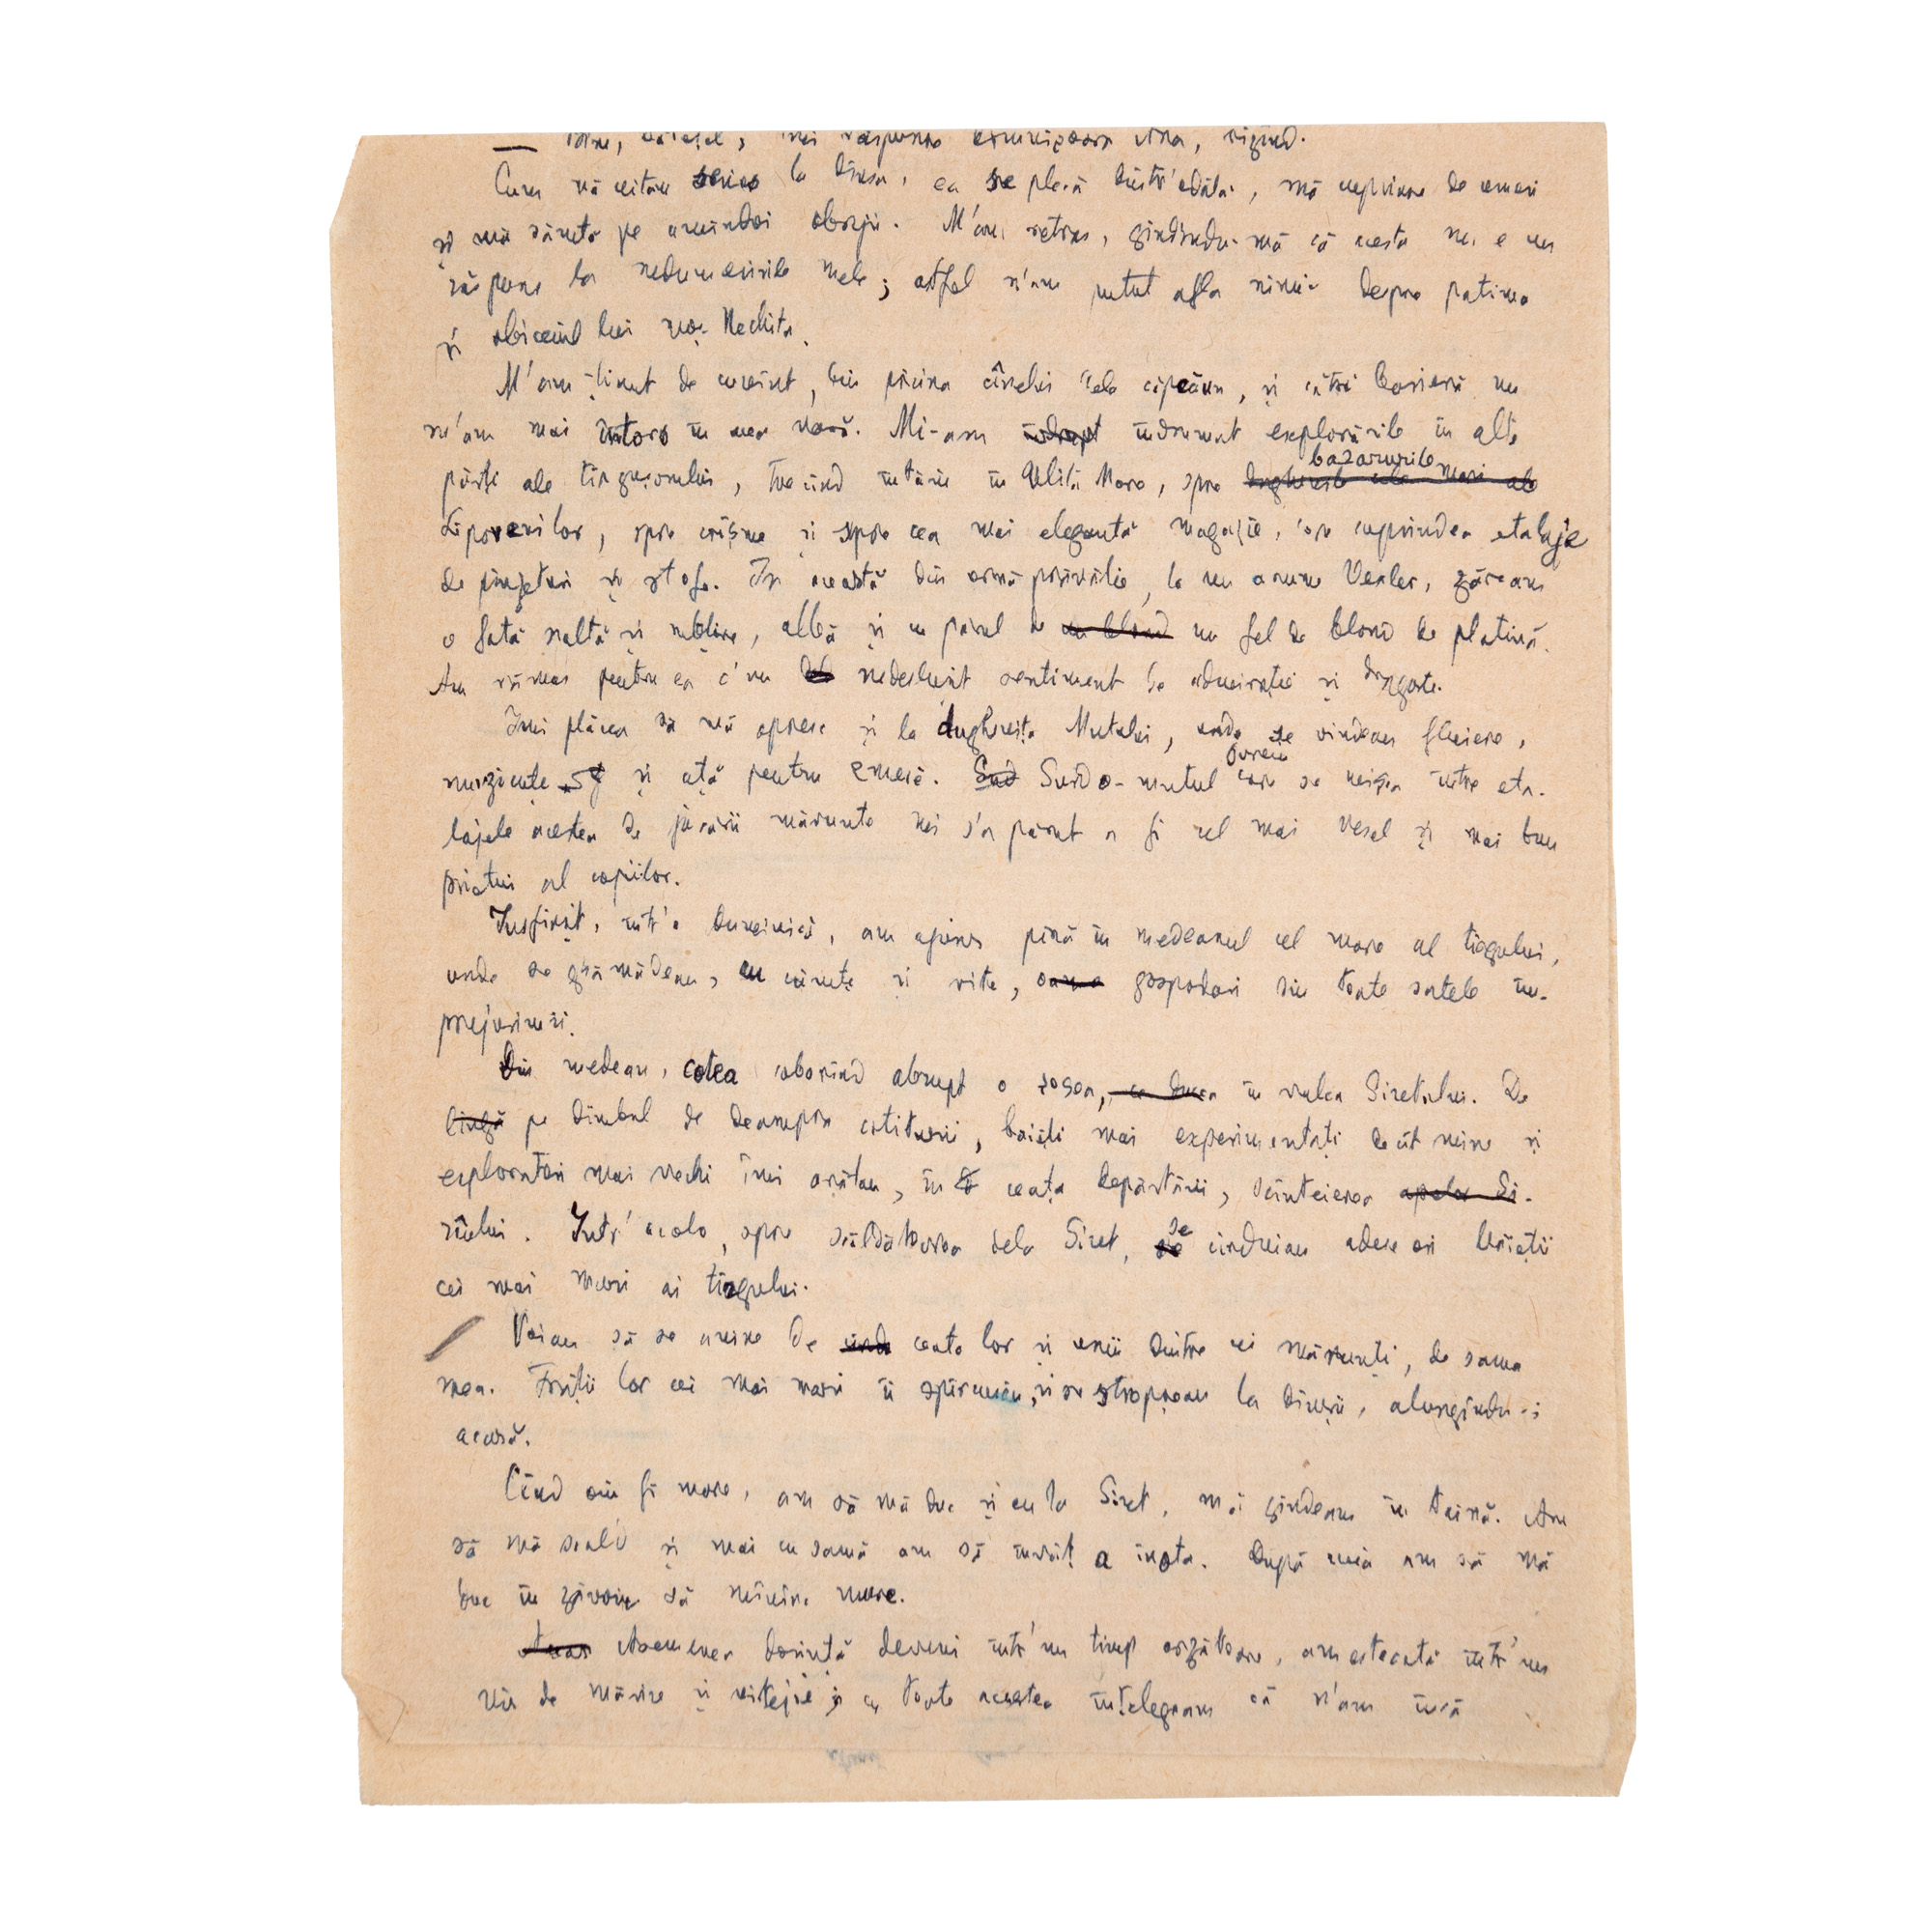 — răspunse bunicuțoara rizînd.
Cum mă uitam serios la dînsa, ea se plecă dintr'odată, mă cuprinse de umeri
și mă sărută pe amîndoi obrajii. M'am retras, gîndindu-mă că acesta nu e un
răspuns la nedumeririle mele; astfel n'am putut afla nimic despre patima
și obiceiul lui moș Nechita.
M'am ținut de cuvînt, din pricina cînelui cela căpcăun, și cătră barieră nu
m'am mai întors în acea vară. Mi-am îndrept îndrumat explorările în alte
părți ale tîrgușorului, trecînd întăiu în Ulița Mare, spre dughenile cele mari ale bazarurile
Lipovenilor, spre crîșme și spre cea mai elegantă magazie, care cuprindea etalaje
de pînzeturi și stofe. In această din urmă prăvălie, la un anume Vexler, găseam
o fată naltă și subțire, albă și cu părul de un blond un fel de blond de platină.
Am rămas pentru ea c'un de nedeslușit sentiment de admirație și dragoste.
Imi plăcea să mă opresc și la dughenița Mutului, unde se vindeau fluiere,
muzicuțe și și ață pentru zmeie. Surd Surdo-mutul ovreiu care se mișca între eta-
lajele acestea de jucării mărunte mi s'a părut a fi cel mai vesel și mai bun
prietin al copiilor.
Insfîrșit, într'o duminică, am ajuns pînă în medeanul cel mare al tîrgului,
unde se grămădeau, cu căruțe și vite, oame gospodari din toate satele îm-
prejurimii.
Din medean, cotea coborînd abrupt o șosea, ce ducea în valea Siretului. De
lîngă pe dîmbul de deasupra cotiturii, băieți mai experimentați decît mine și
exploratori mai vechi îmi arătau, în ceața depărtării, scînteierea apelor Si-
rîului. Intr'acolo, spre scăldătoarea dela Siret, se se îndreptau adese ori băieții
cei mai mari ai tîrgului.
Voiau să se anine de ceata lor și unii dintre cei mărunți, de sama
mea. Frații lor cei mai mari îi și se stropșeau la dînșii, alungîndu-i
acasă.
Cînd oiu fi mare, am să mă duc și eu la Siret, mă gîndeam în taină. Am
să mă scald și mai cu samă am să învăț a înota. După aceia am să mă
duc în zăvoiu să mănînc mure.
Asemenea dorință deveni într'un timp arzătoare, amestecată într'un
vis de mărire și vitejie; și cu toate acestea înțelegeam că n'am încă